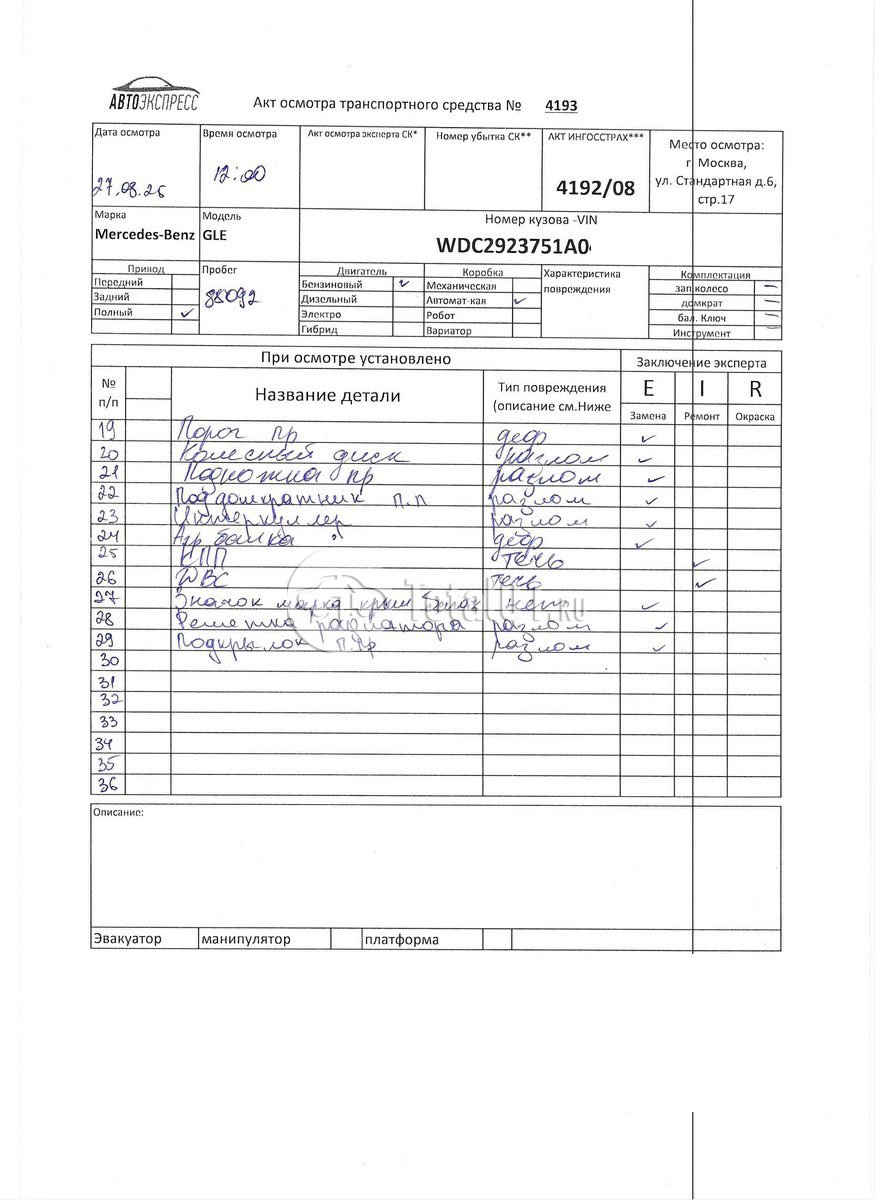 АВТОЭКСПРЕСС
Акт осмотра транспортного средства № 4193
Дата осмотра
Время осмотра
Акт осмотра эксперта СК*
Номер убытка СК**
АКТ ИНГОССТРАХ***
Место осмотра:
г. Москва,
ул. Стандартная д.6,
стр.17
27.08.25
12:00
4192/08
Марка
Модель
Номер кузова -VIN
Mercedes-Benz
GLE
WDC2923751A0
Привод
Пробег
Двигатель
Коробка
Характеристика
повреждения
Комплектация
Передний
Бензиновый ✓
Механическая
зап колесо –
Задний
88092
Дизельный
Автомат-кая ✓
домкрат –
Полный ✓
Электро
Робот
бал. Ключ –
Гибрид
Вариатор
Инструмент –
При осмотре установлено
Заключение эксперта
№
п/п
Название детали
Тип повреждения
(описание см.Ниже
E I R
Замена Ремонт Окраска
19 Порог пр деф ✓
20 Колесный диск разлом ✓
21 Подножка пр разлом ✓
22 Поддомкратник п.п разлом ✓
23 Интеркуллер разлом ✓
24 Агр балка деф ✓
25 КПП течь ✓
26 ДВС течь ✓
27 Значок марка крыш ✓
28 Решетка радиатора разлом ✓
29 Подкрылок п.пр разлом ✓
30
31
32
33
34
35
36
Total01.RU
Описание:
Эвакуатор манипулятор платформа